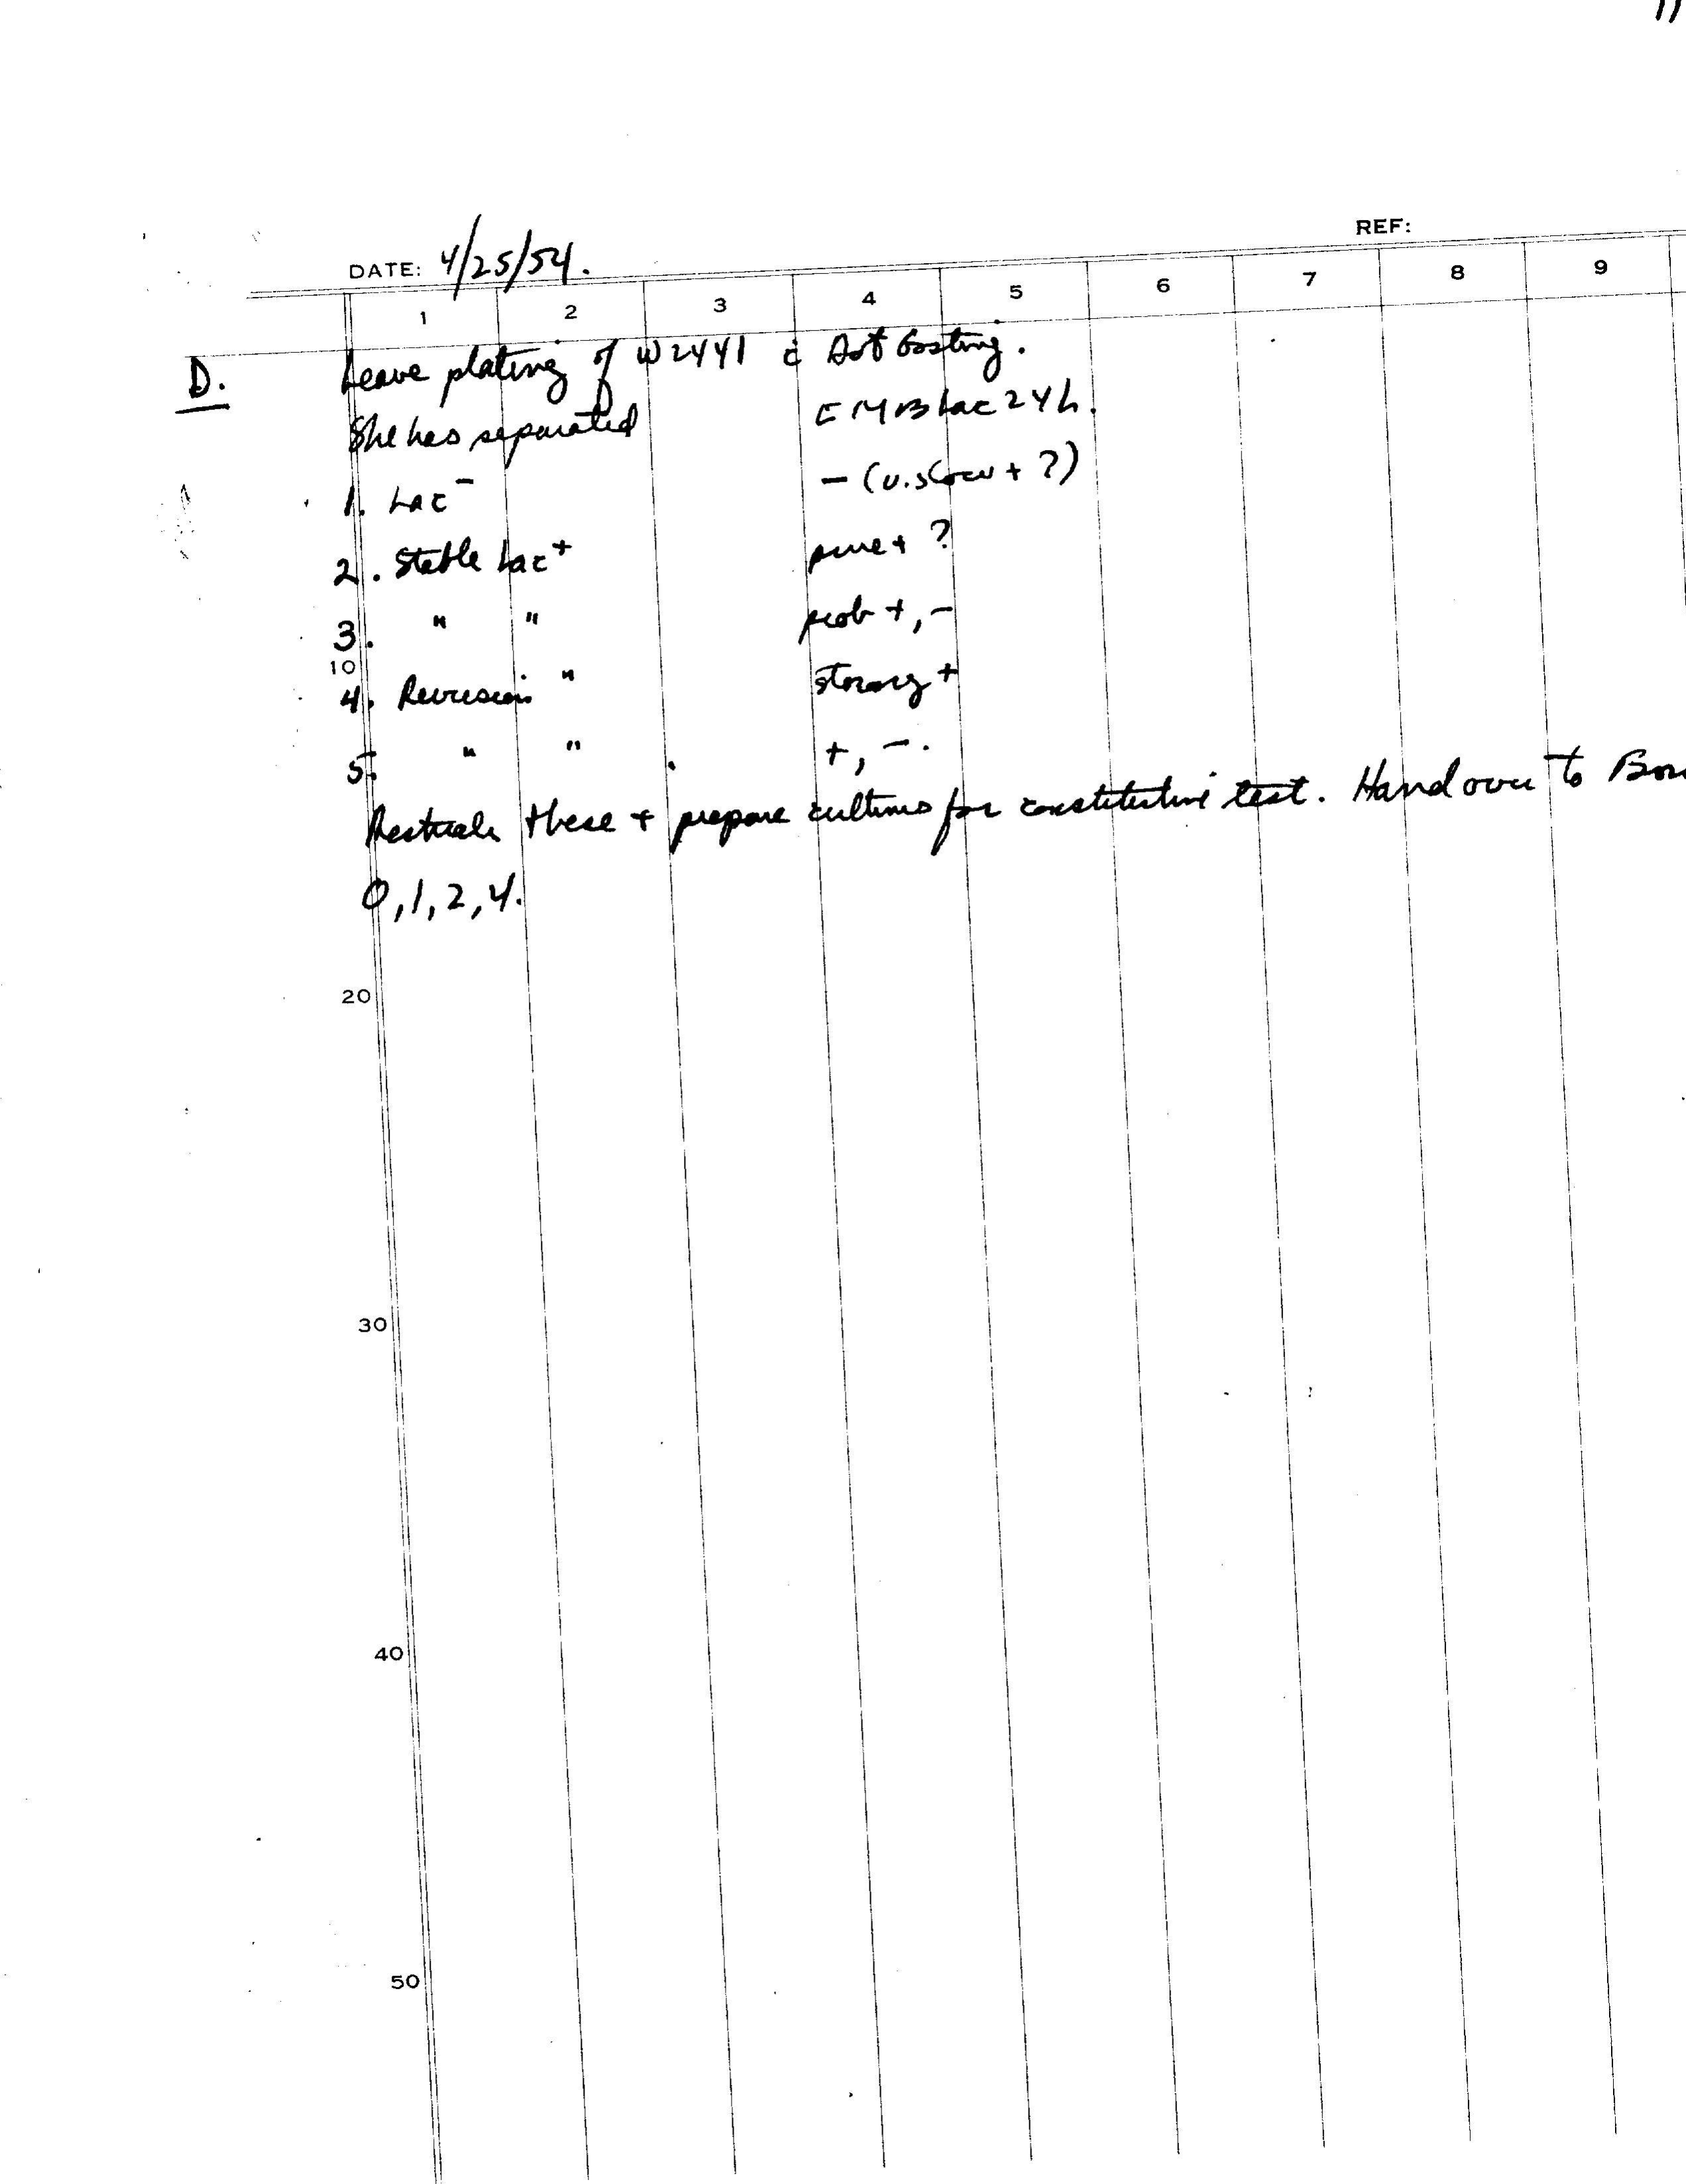 11
REF:
DATE: 4/25/54.
1 2 3 4 5 6 7 8 9
D. Leave plating of W2441 c̄ Dot Gosting.
She has separated EMB Lac 24h.
1. Lac⁻ – (v. slow + ?)
2. Stable Lac⁺ pure + ?
3. " " prob +, –
10
4. Reversion " strong +
5. " " +, – .
Restreak these + prepare cultures for constitutive test. Hand over to
0, 1, 2, 4.
20
30
40
50